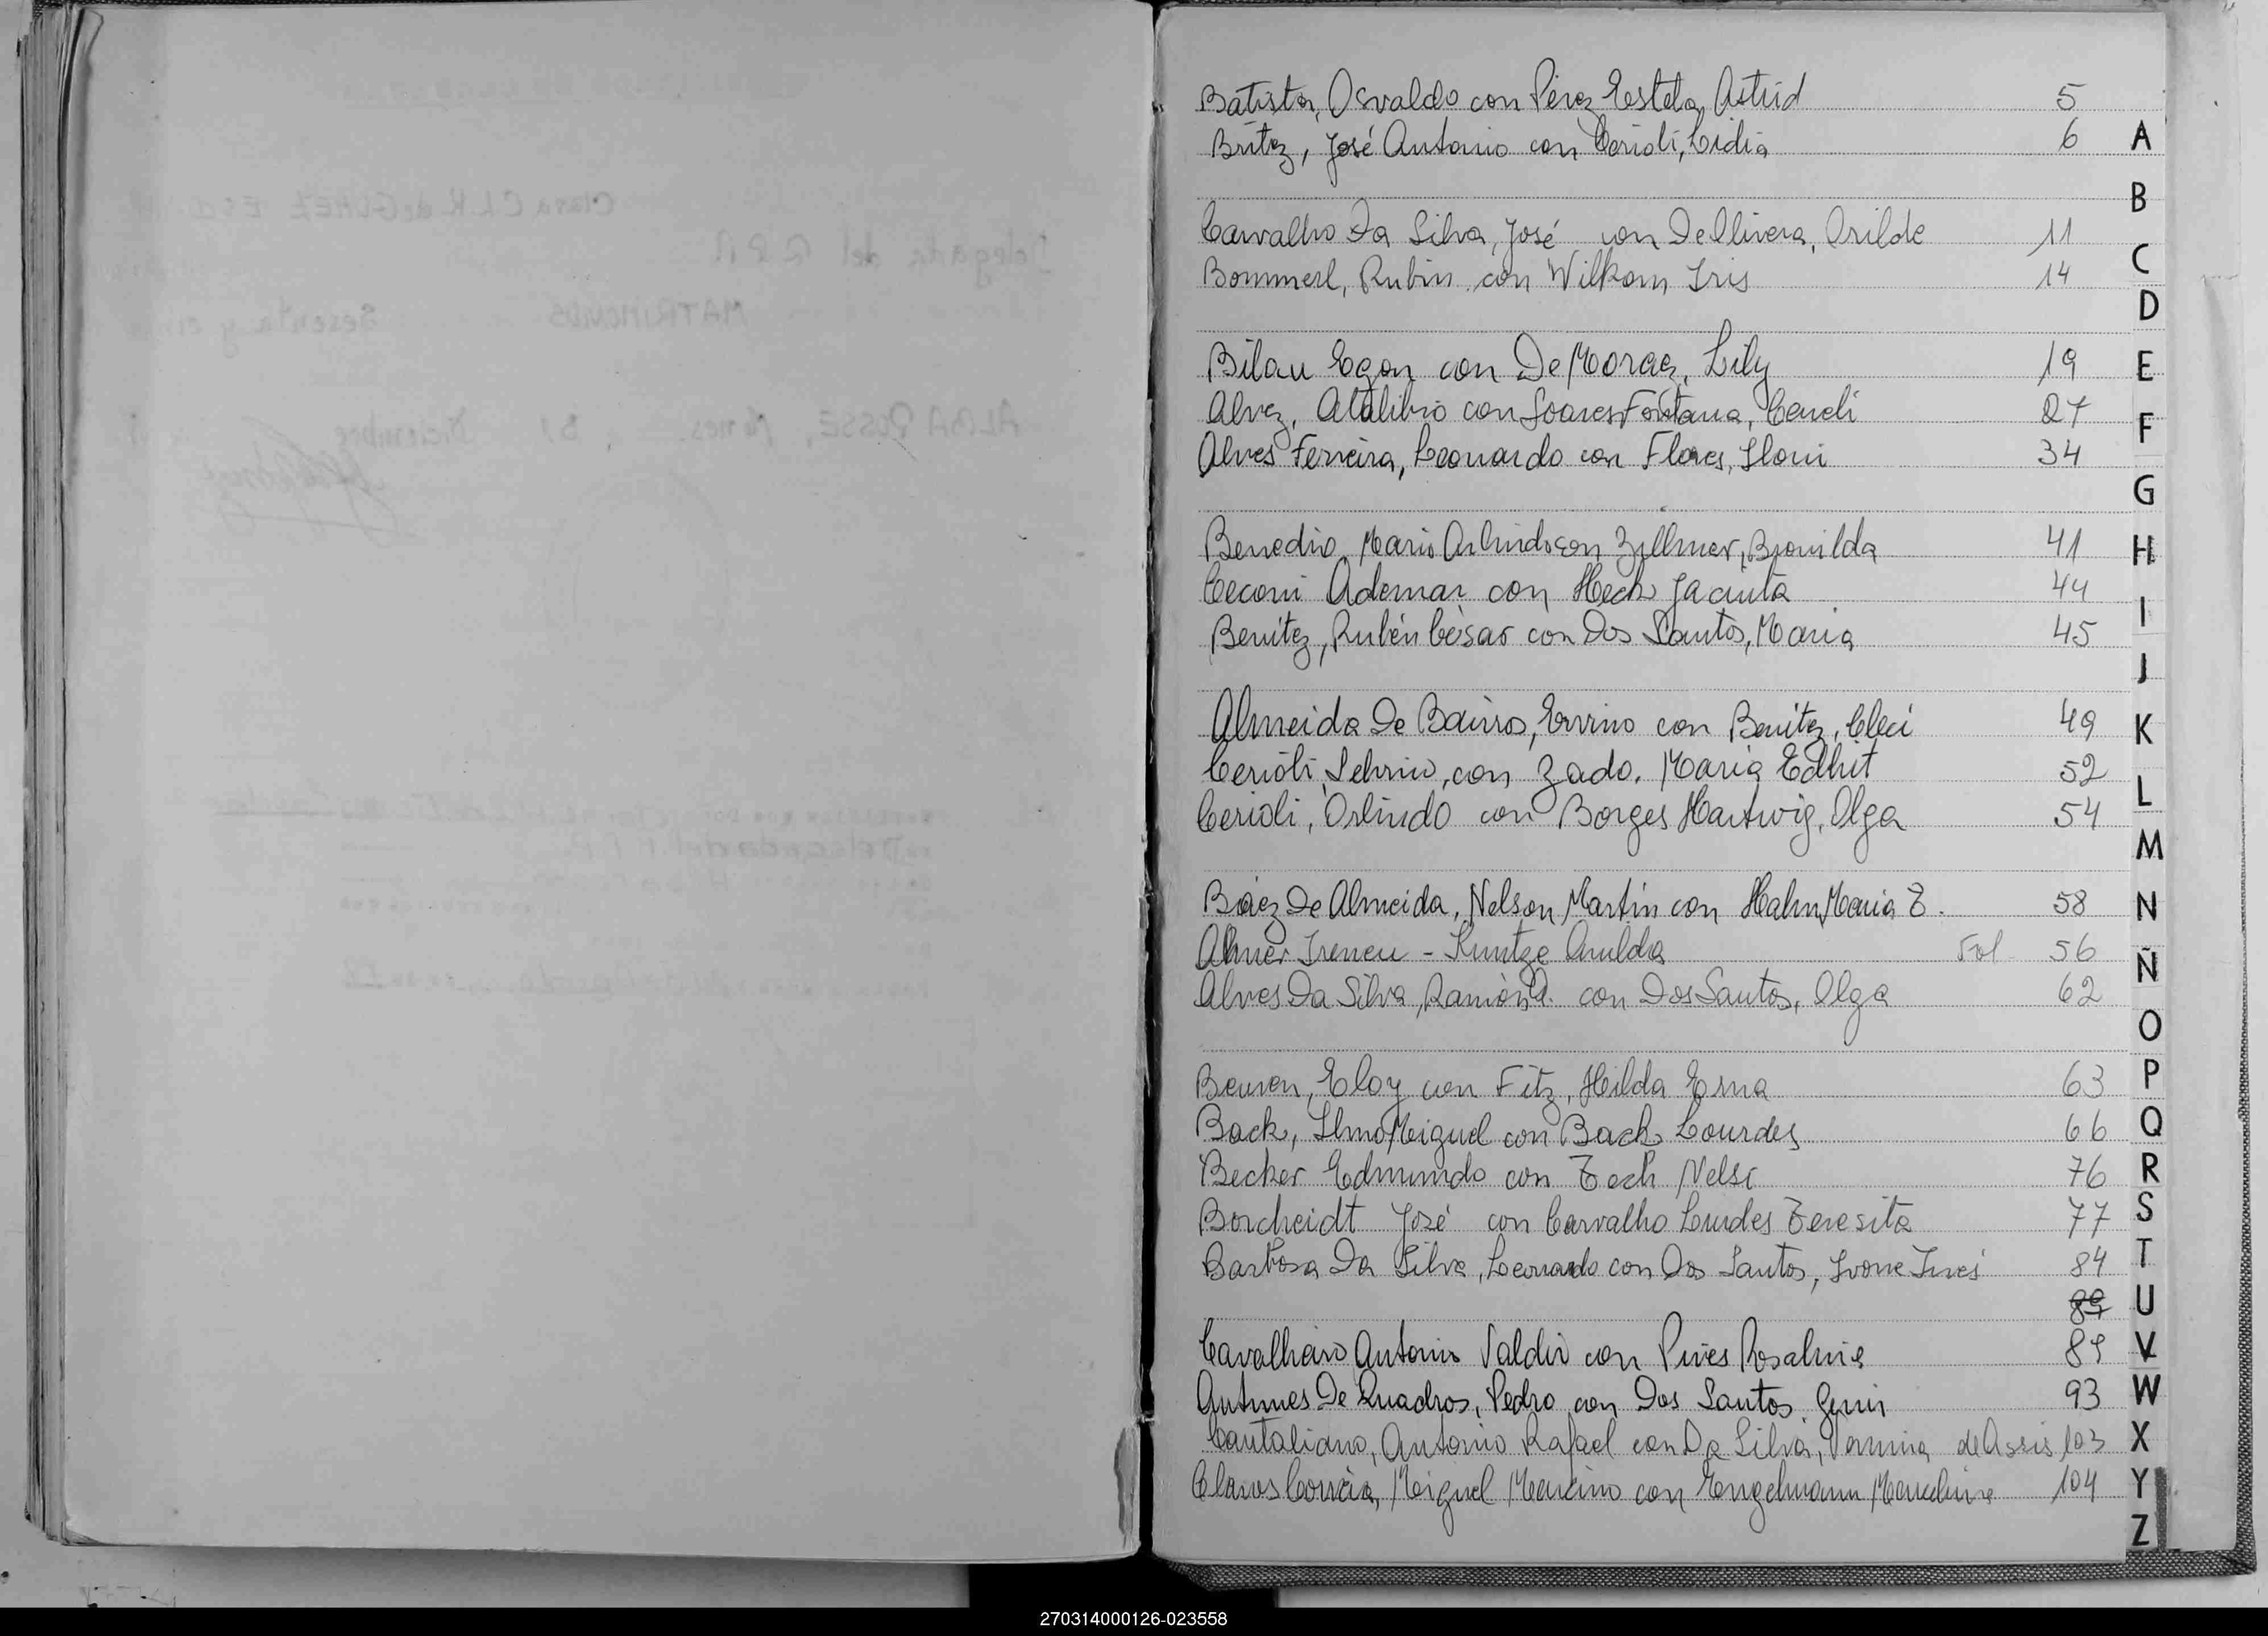 Batista, Osvaldo con Pérez Estela Astrid 5
Britez, José Antonio con Cerioli, Lidia 6
Carvalho Da Silva, José con De Olivera, Orilde 11
Bommerl, Rubin con Wilkom Iris 14
Bilau Egon con De Moraez, Lily 19
Alvez, Atalibio con Soares Fontana, Ceneli 27
Alves Ferreira, Leonardo con Flores, Iloni 34
Benedio, Mario Arlindo con Zillmer, Bronilda 41
Ceconi Ademar con Heck Jacinta 44
Benítez, Rubén César con Dos Santos, Maria 45
Almeida De Bairros, Ervino con Benítez, Cleci 49
Cerioli, con Zado, Maria Edhit 52
Cerioli, Orlindo con Borges Hartwig, Olga 54
Báez De Almeida, Nelson Martín con Hahn Maria T. 58
Almer Ireneu - Kuntze Anulda Fol 56
Alves Da Silva, Ramón A. con Dos Santos, Olga 62
Beuren, Eloy con Fitz, Hilda Erna 63
Back, Ilmo Miguel con Back Lourdes 66
Becker Edmundo con Tech Nelsi 76
Borcheidt José con Carvalho Lurdes Teresita 77
Barbosa Da Silva, Leonardo con Dos Santos, Ivone Inés 84
89
Cavalheiro Antonio Valdir con Pires Rosalina 89
Antunes De Quadros, Pedro con Dos Santos, Genir 93
Cantaliano, Antonio Rafael con Da Silva, de Assis 103
Claros Correia, Miguel Marcino con Engelmann 104
A
B
C
D
E
F
G
H
I
J
K
L
M
N
Ñ
O
P
Q
R
S
T
U
V
W
X
Y
Z
270314000126-023558